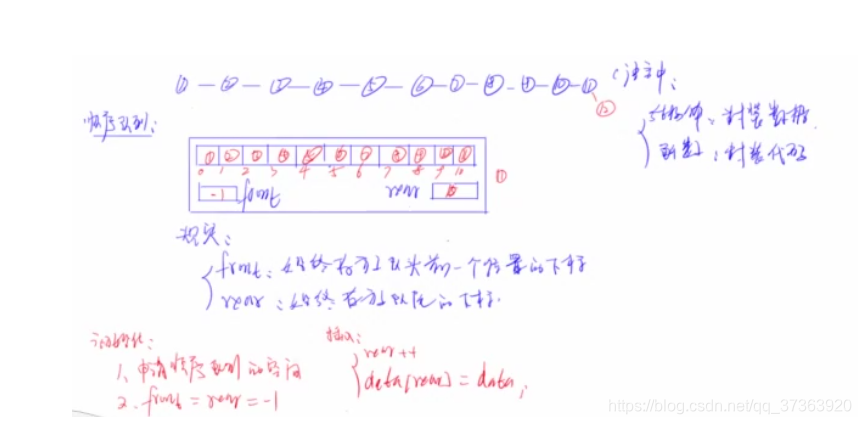 ①—②—③—④—⑤—⑥—⑦—⑧—⑨—⑩—⑪
⑫
C语言中:
结构体:封装数据
函数:封装代码
顺序队列:
① ② ③ ④ ⑤ ⑥ ⑦ ⑧ ⑨ ⑩ ⑪
0 1 2 3 4 5 6 7 8 9 10
-1 front rear 10
规定:
front:始终存放队头前一个位置的下标
rear:始终存放队尾的下标.
初始化:
1、申请顺序队列的空间
2. front = rear = -1
插入:
rear++
data[rear] = data;
https://blog.csdn.net/qq_37363920